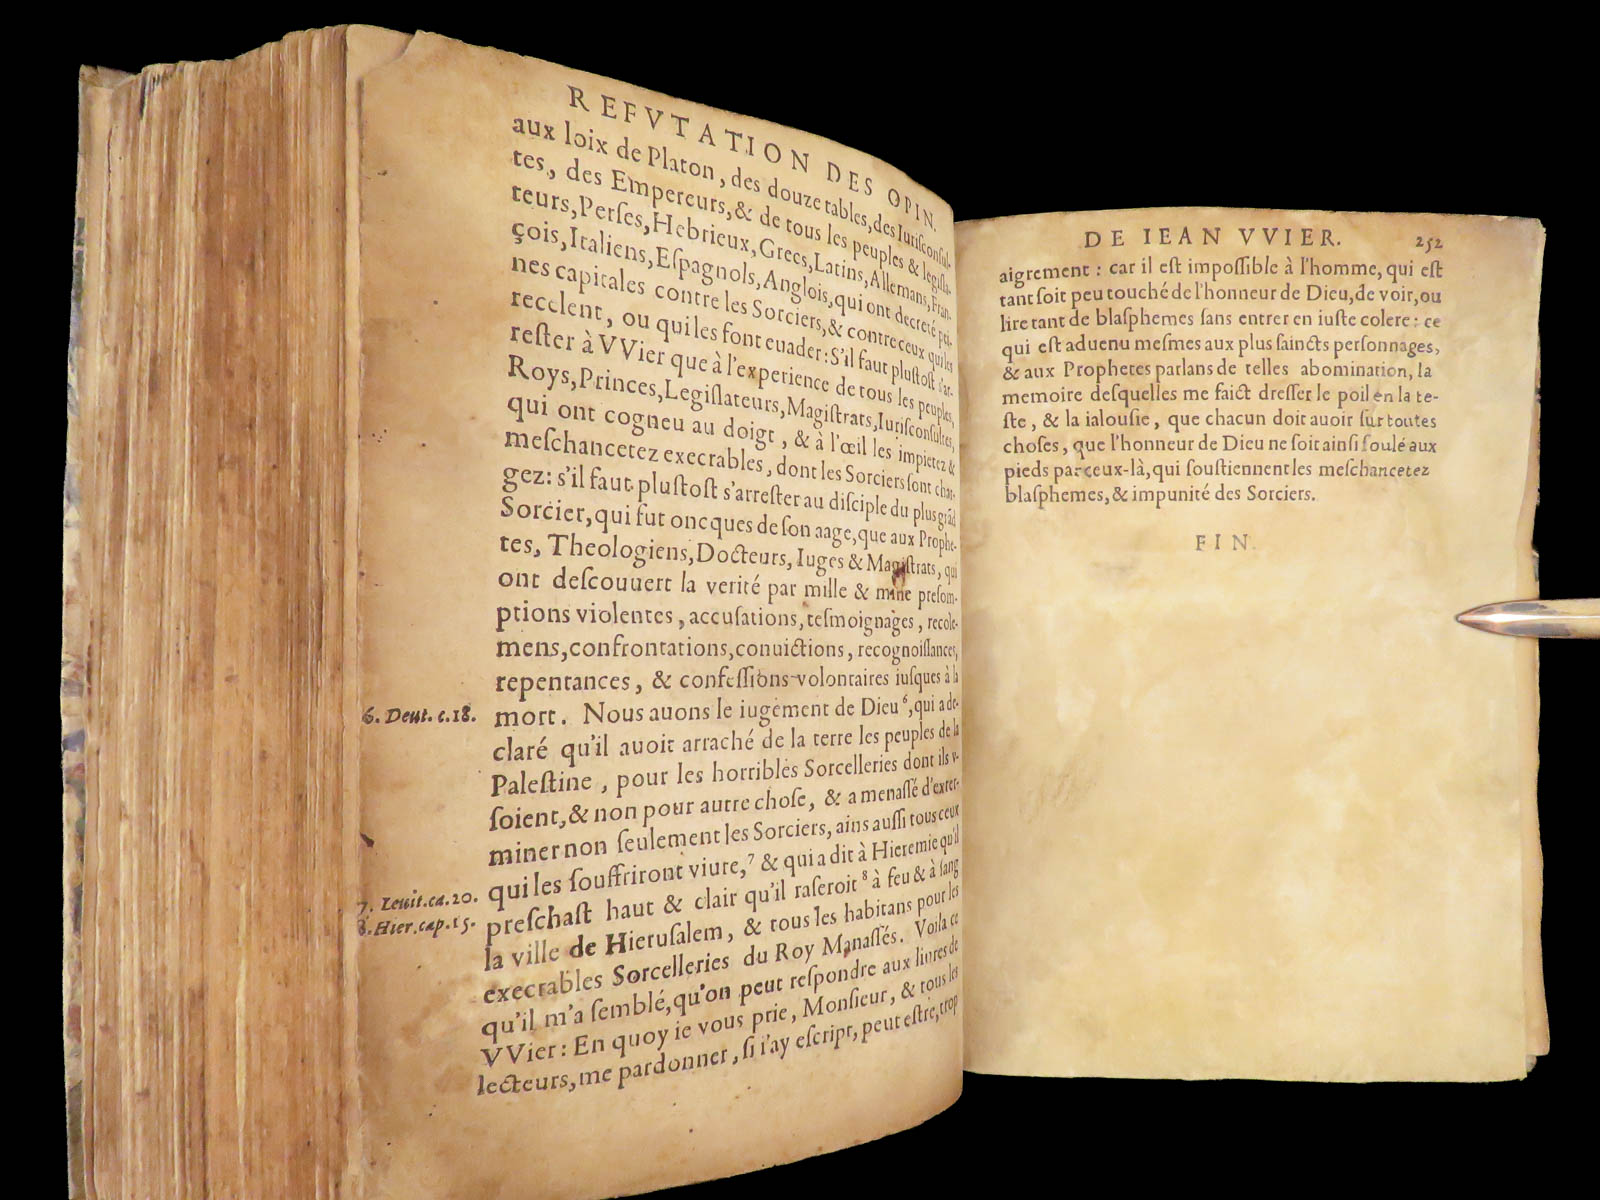 REFVTATION DES OPIN.
aux loix de Platon, des douze tables, des Iuriſconſul-
tes, des Empereurs, & de tous les peuples & legiſla-
teurs, Perſes, Hebrieux, Grecs, Latins, Allemans, Fran-
çois, Italiens, Eſpagnols, Anglois, qui ont decreté pei-
nes capitales contre les Sorciers, & contre ceux qui les
recelent, ou qui les font euader: S'il faut pluſtoſt s'ar-
reſter à VVier que à l'experience de tous les peuples,
Roys, Princes, Legiſlateurs, Magiſtrats, Iuriſconſultes,
qui ont cogneu au doigt, & à l'œil les impietez &
meſchancetez execrables, dont les Sorciers ſont char-
gez: s'il faut pluſtoſt s'arreſter au diſciple du plus grãd
Sorcier, qui fut oncques de ſon aage, que aux Prophe-
tes, Theologiens, Docteurs, Iuges & Magiſtrats, qui
ont deſcouuert la verité par mille & mille preſom-
ptions violentes, accuſations, teſmoignages, recole-
mens, confrontations, conuictions, recognoiſſances,
repentances, & confeſſions volontaires iuſques à la
6. Deut. c.18. mort. Nous auons le iugement de Dieu⁶, qui a de-
claré qu'il auoit arraché de la terre les peuples de la
Paleſtine, pour les horribles Sorcelleries dont ils v-
ſoient, & non pour autre choſe, & a menaſſé d'exter-
miner non ſeulement les Sorciers, ains auſſi tous ceux
7. Leuit.ca.20. qui les ſouffriront viure,⁷ & qui a dit à Hieremie qu'il
8. Hier.cap.15. preſchaſt haut & clair qu'il raſeroit⁸ à feu & à ſang
la ville de Hieruſalem, & tous les habitans pour les
execrables Sorcelleries du Roy Manaſſés. Voila ce
qu'il m'a ſemblé, qu'on peut reſpondre aux liures de
VVier: En quoy ie vous prie, Monſieur, & tous les
lecteurs, me pardonner, ſi i'ay eſcript, peut eſtre, trop
DE IEAN VVIER. 252
aigrement: car il eſt impoſſible à l'homme, qui eſt
tant ſoit peu touché de l'honneur de Dieu, de voir, ou
lire tant de blaſphemes ſans entrer en iuſte colere: ce
qui eſt aduenu meſmes aux plus ſaincts perſonnages,
& aux Prophetes parlans de telles abomination, la
memoire deſquelles me faict dreſſer le poil en la te-
ſte, & la ialouſie, que chacun doit auoir ſur toutes
choſes, que l'honneur de Dieu ne ſoit ainſi foulé aux
pieds par ceux-là, qui ſouſtiennent les meſchancetez
blaſphemes, & impunité des Sorciers.
FIN.